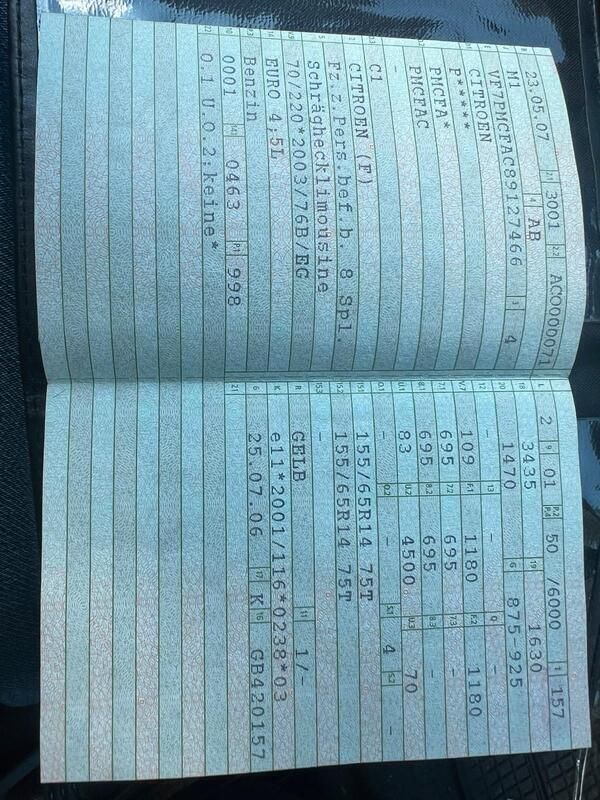 B 23.05.07 2.1 3001 2.2 ACO0000071
J M1 4 AB
E VF7PMCFAC89127466 3 4
D.1 CITROEN
D.2 P*****
PMCFA*
PMCFAC
-
D.3 C1
2 CITROEN (F)
5 Fz.z.Pers.bef.b. 8 Spl.
Schräghecklimousine
V.9 70/220*2003/76B/EG
14 EURO 4;5L
P.3 Benzin
10 0001 14.1 0463 P.1 998
22 O.1 U.O.2:keine*
L 2 9 01 P.2 P.4 50 /6000 T 157
18 3435 19 1630
20 1470 G 875-925
12 - 13 - Q -
V.7 109 F.1 1180 F.2 1180
7.1 695 7.2 695 7.3 -
8.1 695 8.2 695 8.3 -
U.1 83 U.2 4500 U.3 70
O.1 - O.2 - S.1 4 S.2 -
15.1 155/65R14 75T
15.2 155/65R14 75T
15.3 -
R GELB 11 1/-
K e11*2001/116*0238*03
6 25.07.06 17 K 16 GB420157
21